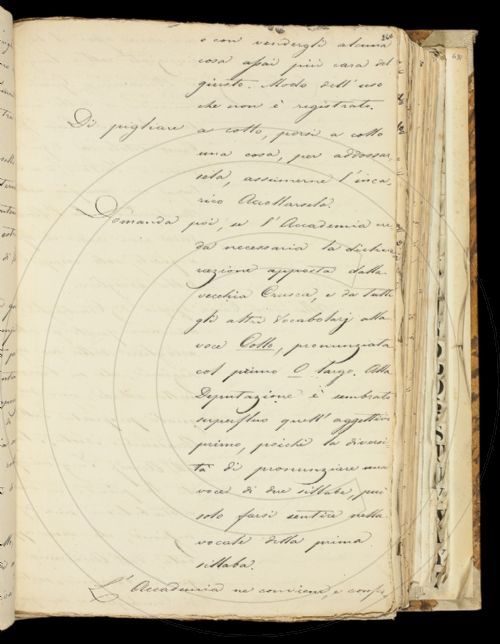 o con vendergli alcuna
cosa assai più cara del
giusto. Modo dell'uso
che non è registrato.
Di pigliare a cotto, porsi a cotto
una cosa, per addossar-
sela, assumerne l'inca-
rico Accollarsela.
Domanda poi, se l'Accademia cre-
da necessaria la dichia-
razione apposta dalla
vecchia Crusca, e da tutti
gli altri Vocabolarj alla
voce Collo, pronunziata
col primo O largo. Alla
Deputazione è sembrato
superfluo quell'aggettivo
primo, poichè la diversi-
tà di pronunziare una
voce di due sillabe, può
solo farsi sentire nella
vocale della prima
sillaba.
L'Accademia ne conviene, e